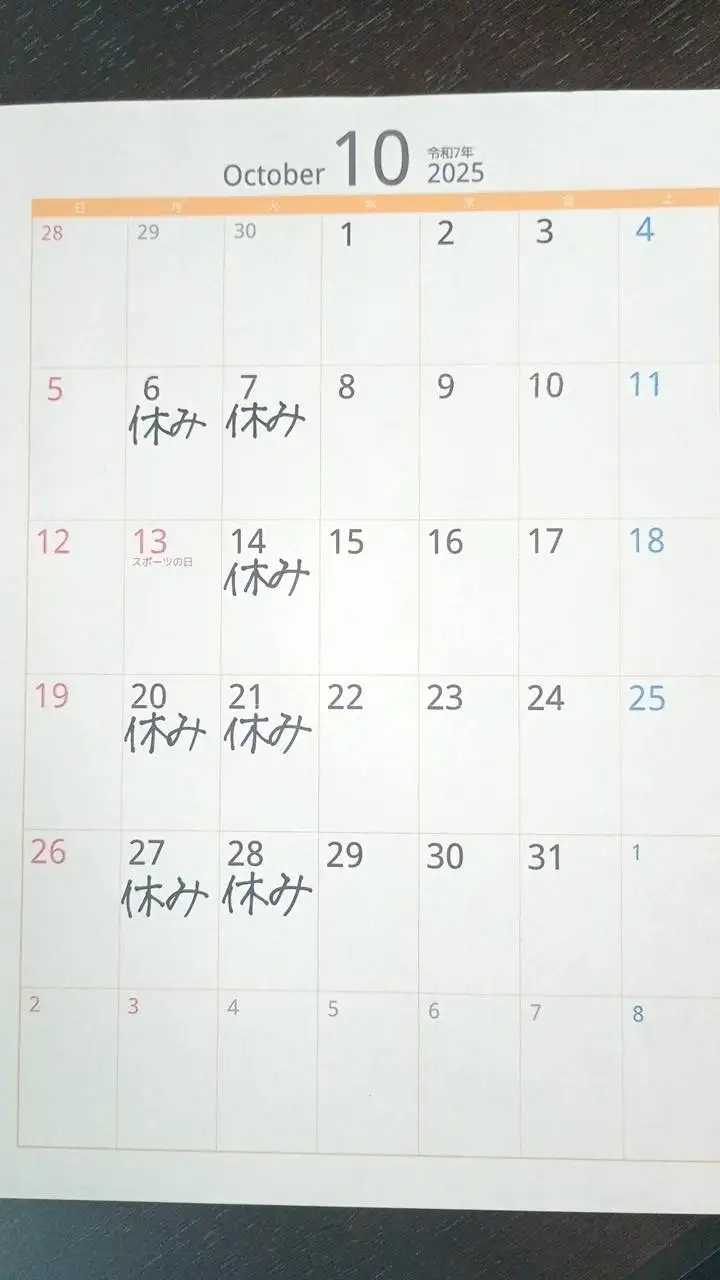 October 10 令和7年 2025
日 月 火 水 木 金 土
28 29 30 1 2 3 4
5 6 7 8 9 10 11
休み 休み
12 13 14 15 16 17 18
スポーツの日 休み
19 20 21 22 23 24 25
休み 休み
26 27 28 29 30 31 1
休み 休み
2 3 4 5 6 7 8